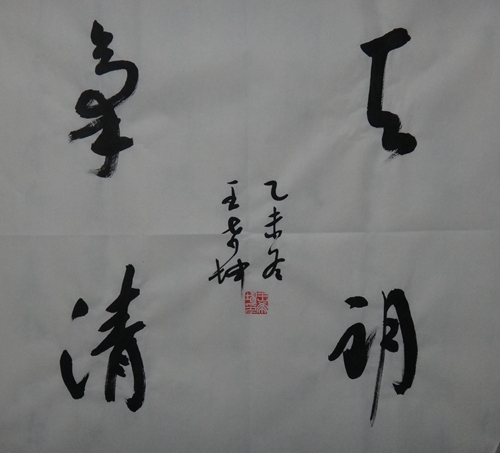 天朗
氣清
乙未冬
王 坤